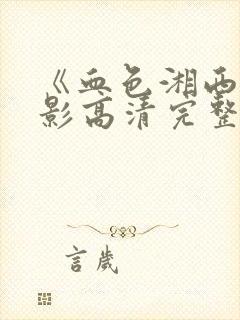 《血色湘西
影高清完整
言歲